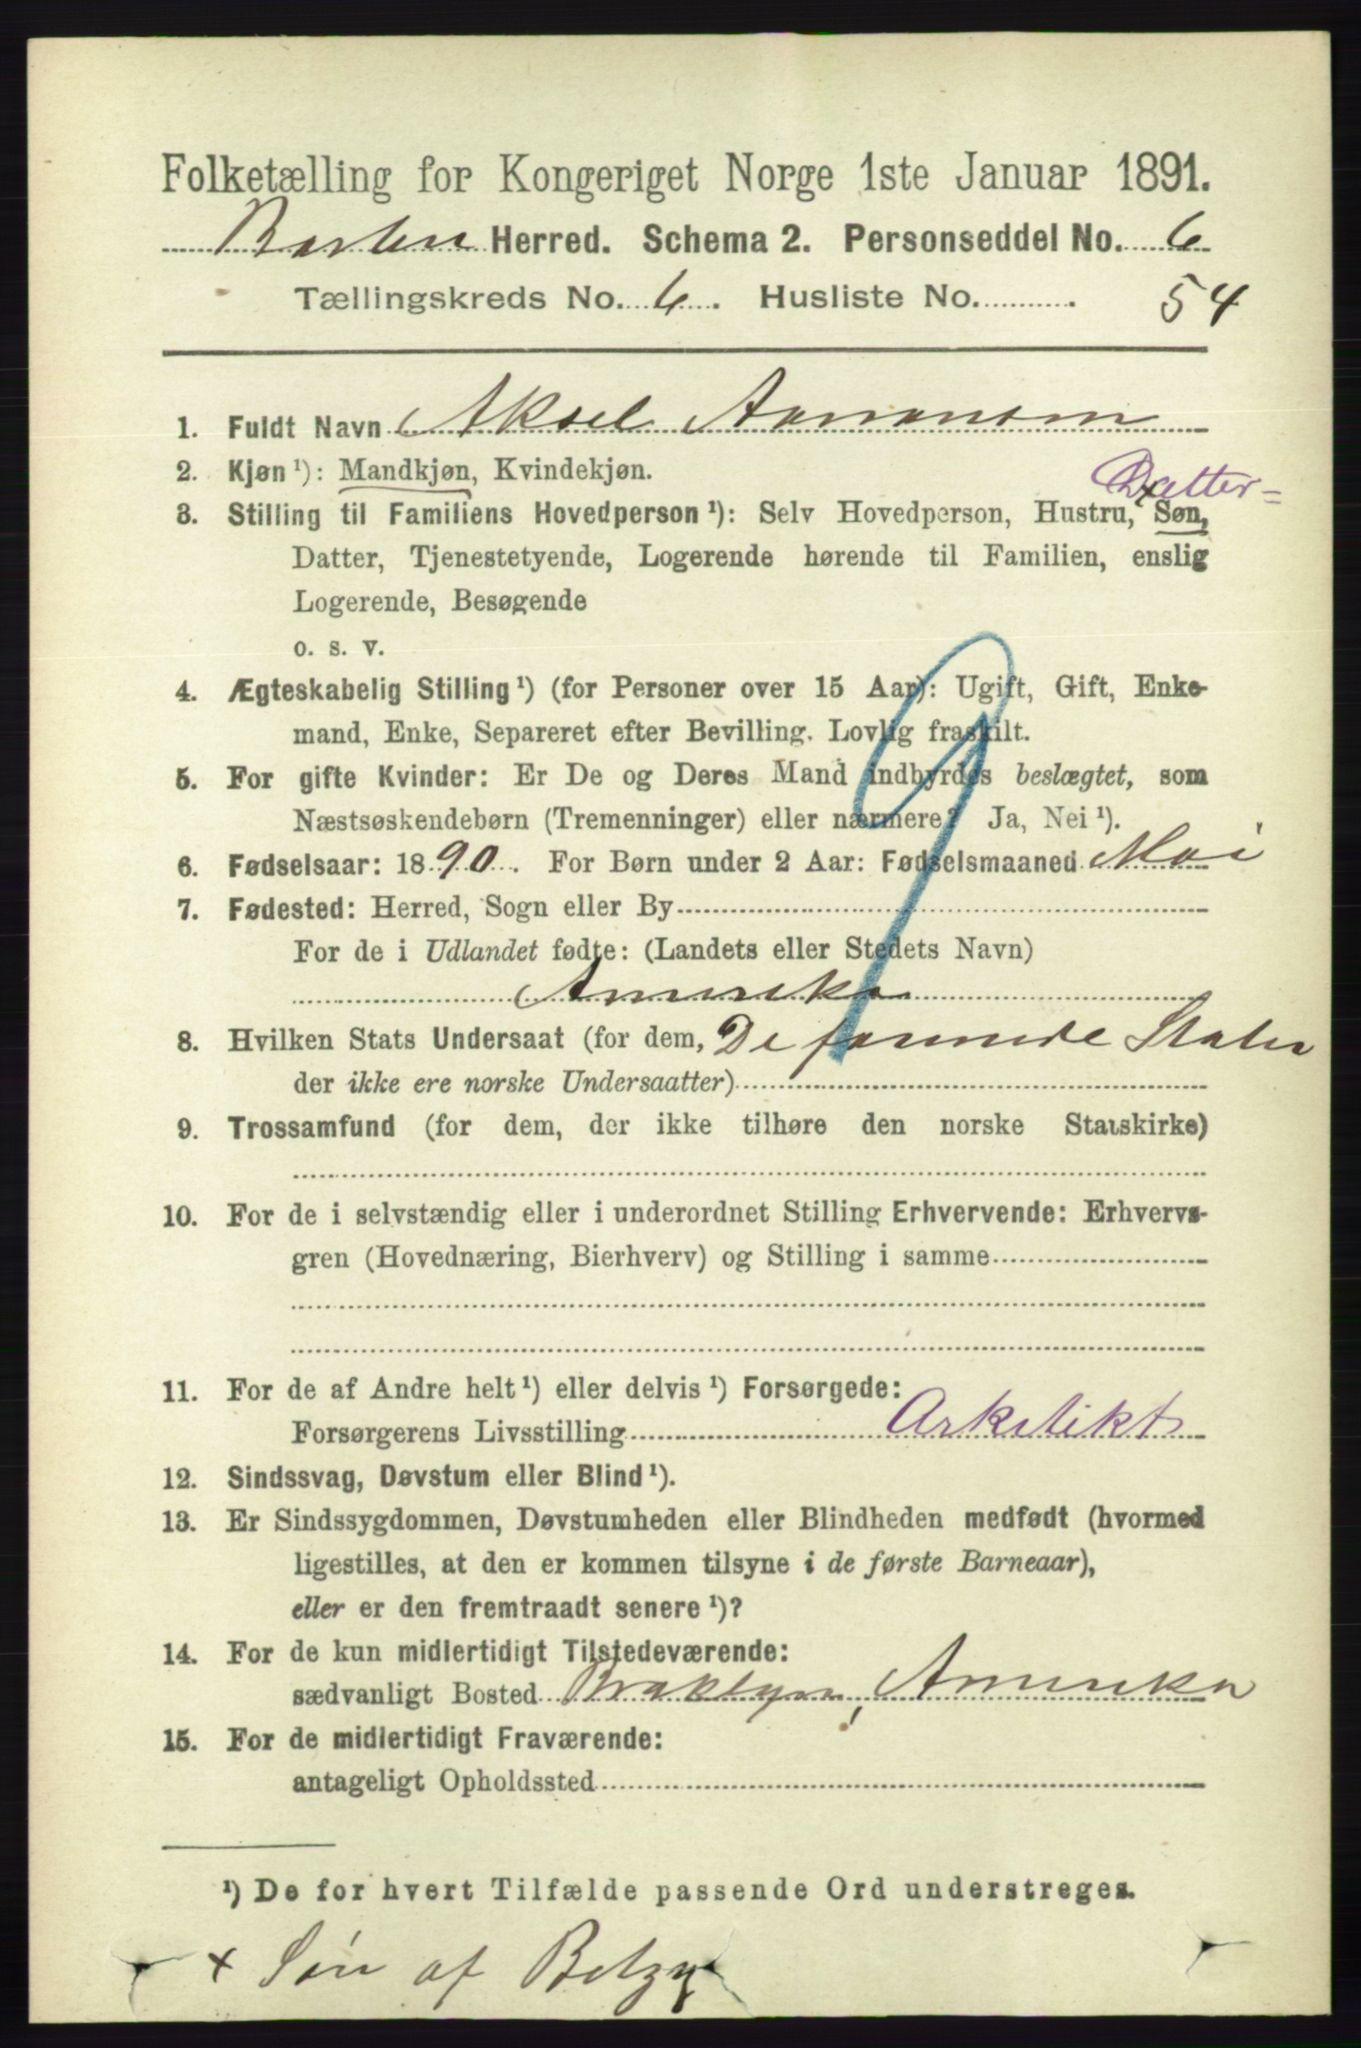 Folketælling for Kongeriget Norge 1ste Januar 1891.
Herred. Schema 2. Personseddel No. 6
Tællingskreds No. 6. Husliste No. 54
1. Fuldt Navn Aksel Aanonsen
2. Kjøn ¹): Mandkjøn, Kvindekjøn.
Datter-
3. Stilling til Familiens Hovedperson ¹): Selv Hovedperson, Hustru, × Søn,
Datter, Tjenestetyende, Logerende hørende til Familien, enslig
Logerende, Besøgende
o. s. v.
4. Ægteskabelig Stilling ¹) (for Personer over 15 Aar): Ugift, Gift, Enke-
mand, Enke, Separeret efter Bevilling. Lovlig fraskilt.
5. For gifte Kvinder: Er De og Deres Mand indbyrdes beslægtet, som
Næstsøskendebørn (Tremenninger) eller nærmere? Ja, Nei ¹).
6. Fødselsaar: 1890. For Børn under 2 Aar: Fødselsmaaned Mai
7. Fødested: Herred, Sogn eller By
For de i Udlandet fødte: (Landets eller Stedets Navn)
Amerika
8. Hvilken Stats Undersaat (for dem, De forenede Stater
der ikke ere norske Undersaatter)
9. Trossamfund (for dem, der ikke tilhøre den norske Statskirke)
10. For de i selvstændig eller i underordnet Stilling Erhvervende: Erhvervs-
gren (Hovednæring, Bierhverv) og Stilling i samme
11. For de af Andre helt ¹) eller delvis ¹) Forsørgede:
Forsørgerens Livsstilling Arkitikt
12. Sindssvag, Døvstum eller Blind ¹).
13. Er Sindssygdommen, Døvstumheden eller Blindheden medfødt (hvormed
ligestilles, at den er kommen tilsyne i de første Barneaar),
eller er den fremtraadt senere ¹)?
14. For de kun midlertidigt Tilstedeværende:
sædvanligt Bosted Broklyn, Amerika
15. For de midlertidigt Fraværende:
antageligt Opholdssted
¹) De for hvert Tilfælde passende Ord understreges.
× Søn af Betzy